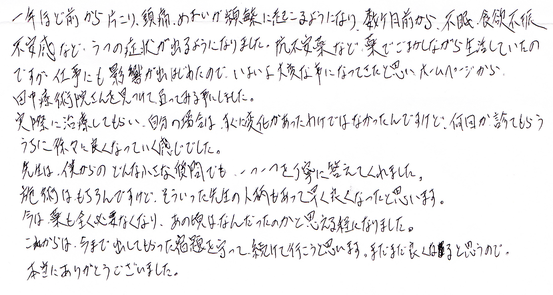 一年ほど前から片こり、頭痛、めまいが頻繁に起こるようになり、数ヶ月前から、不眠、食欲不振
不安感など、うつの症状が出るようになりました。抗不安薬など、薬でごまかしながら生活していたの
ですが、仕事にも影響が出はじめたので、いよいよ大変な事になってきたと思い、ホームページから、
田中療術院さんを見つけて、直ってみる事にしました。
実際に治療してもらい、自分の場合は、すぐに変化があったわけではなかったんですけど、何回か診てもらう
うちに徐々に良くなっていく感じでした。
先生は、僕からのどんな小さな質問でも、一つ一つを丁寧に答えてくれました。
施術はもちろんですけど、そういった先生の人柄もあって早く良くなったと思います。
今は、薬も全く必要なくなり、あの頃はなんだったのかと思える程になりました。
これからは、今まで出してもらった宿題を守って、続けて行こうと思います。まだまだ良くなると思うので。
本当にありがとうございました。